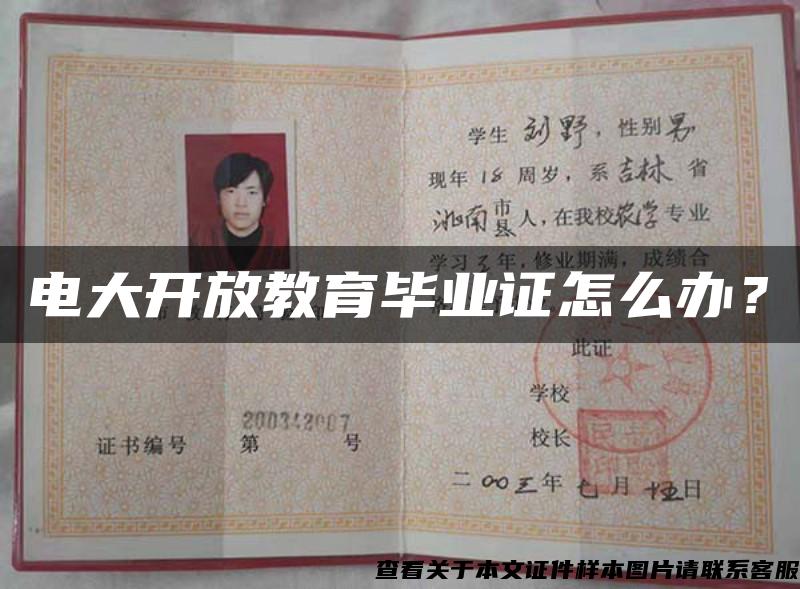 学生 刘野，性别 男
现年 18 周岁，系 吉林 省
洮南 市县 人，在我校 农学 专业
学习 三 年，修业期满，成绩合
电大开放教育毕业证怎么办？
此证
学校
校长
二〇〇三年 七 月 十五日
200342007
证书编号 第 号
查看关于本文证件样本图片请联系客服